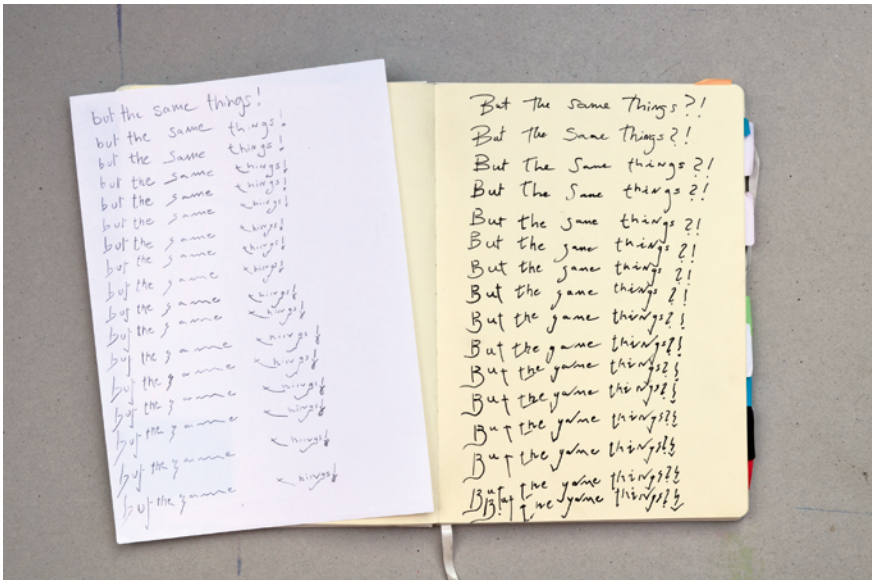 but the same things!
but the same things!
but the same things!
but the same things!
but the same things!
but the same things!
but the same things!
but the same things!
but the same things!
but the same hings!
but the same hings!
but the same hings!
but the same hings!
but the same hings!
but the same hings!
but the same hings!
but the same hings!
But The Same Things?!
But The Same Things?!
But The Same things?!
But The Same things?!
But the same things?!
But the same things?!
But the same things?!
But the game things?!
But the game things?!
But the game things?!
But the game things?!
But the yame things?!
But the yame things?!
But the yame things?!
But the yame things?!
But the yame things?!